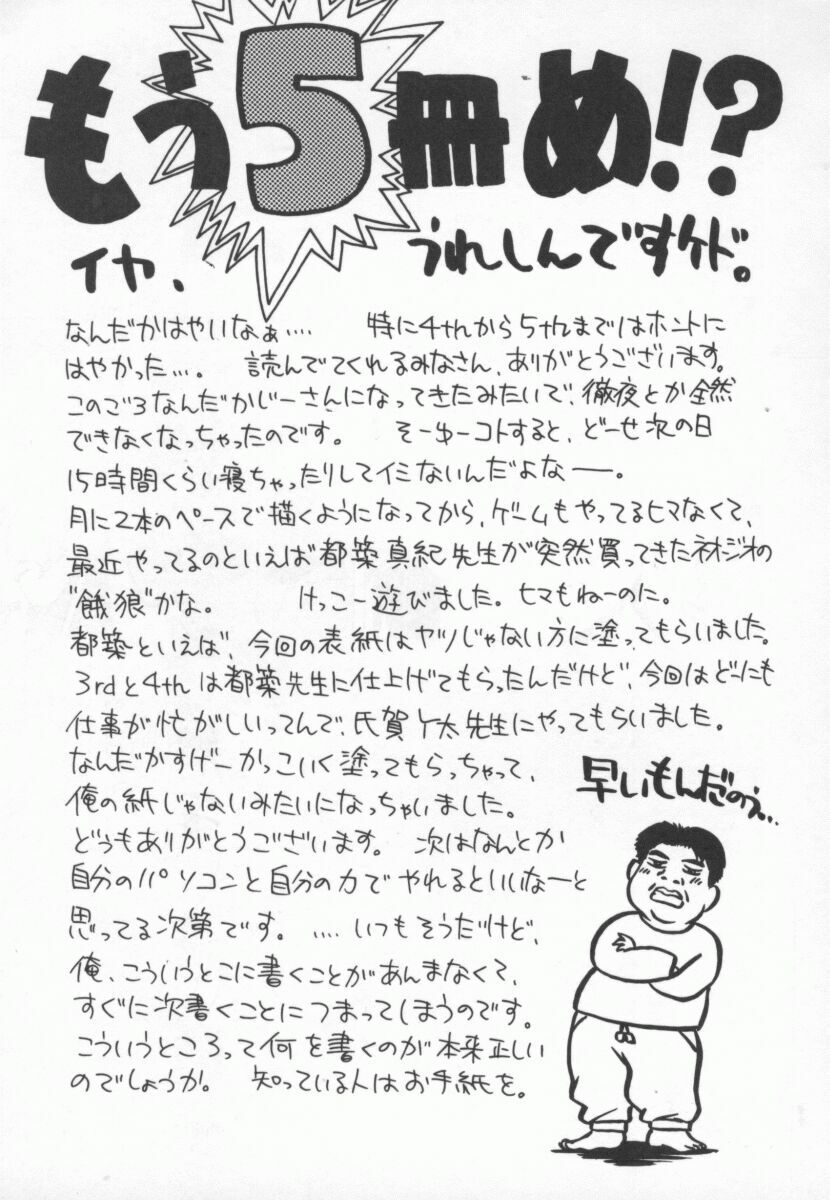 もう5冊め!?
イヤ、 うれしんですけド。
なんだかはやいなぁ…. 特に4thから5thまではホントに
はやかった…。 読んでてくれるみなさん、ありがとうございます。
このごろなんだかじーさんになってきたみたいで、徹夜とか全然
できなくなっちゃったのです。 そーゆーコトすると、どーせ次の日
15時間くらい寝ちゃったりしてイミないんだよなー。
月に2本のペースで描くようになってから、ゲームもやってるヒマなくて、
最近やってるのといえば都築真紀先生が突然買ってきたネオジオの
"餓狼"かな。 けっこー遊びました。ヒマもねーのに。
都築といえば、今回の表紙はヤツじゃない方に塗ってもらいました。
3rdと4thは都築先生に仕上げてもらったんだけど、今回はどーにも
仕事が忙がしいってんで、氏賀Y太先生にやってもらいました。
なんだかすげーかっこいく塗ってもらっちゃって、
俺の紙じゃないみたいになっちゃいました。
どうもありがとうございます。 次はなんとか
自分のパソコンと自分の力でやれるといいなーと
思ってる次第です。 ….いつもそうだけど、
俺、こういうとこに書くことがあんまなくて、
すぐに次書くことにつまってしまうのです。
こういうところって何を書くのが本来正しい
のでしょうか。 知っている人はお手紙を。
早いもんだのう…